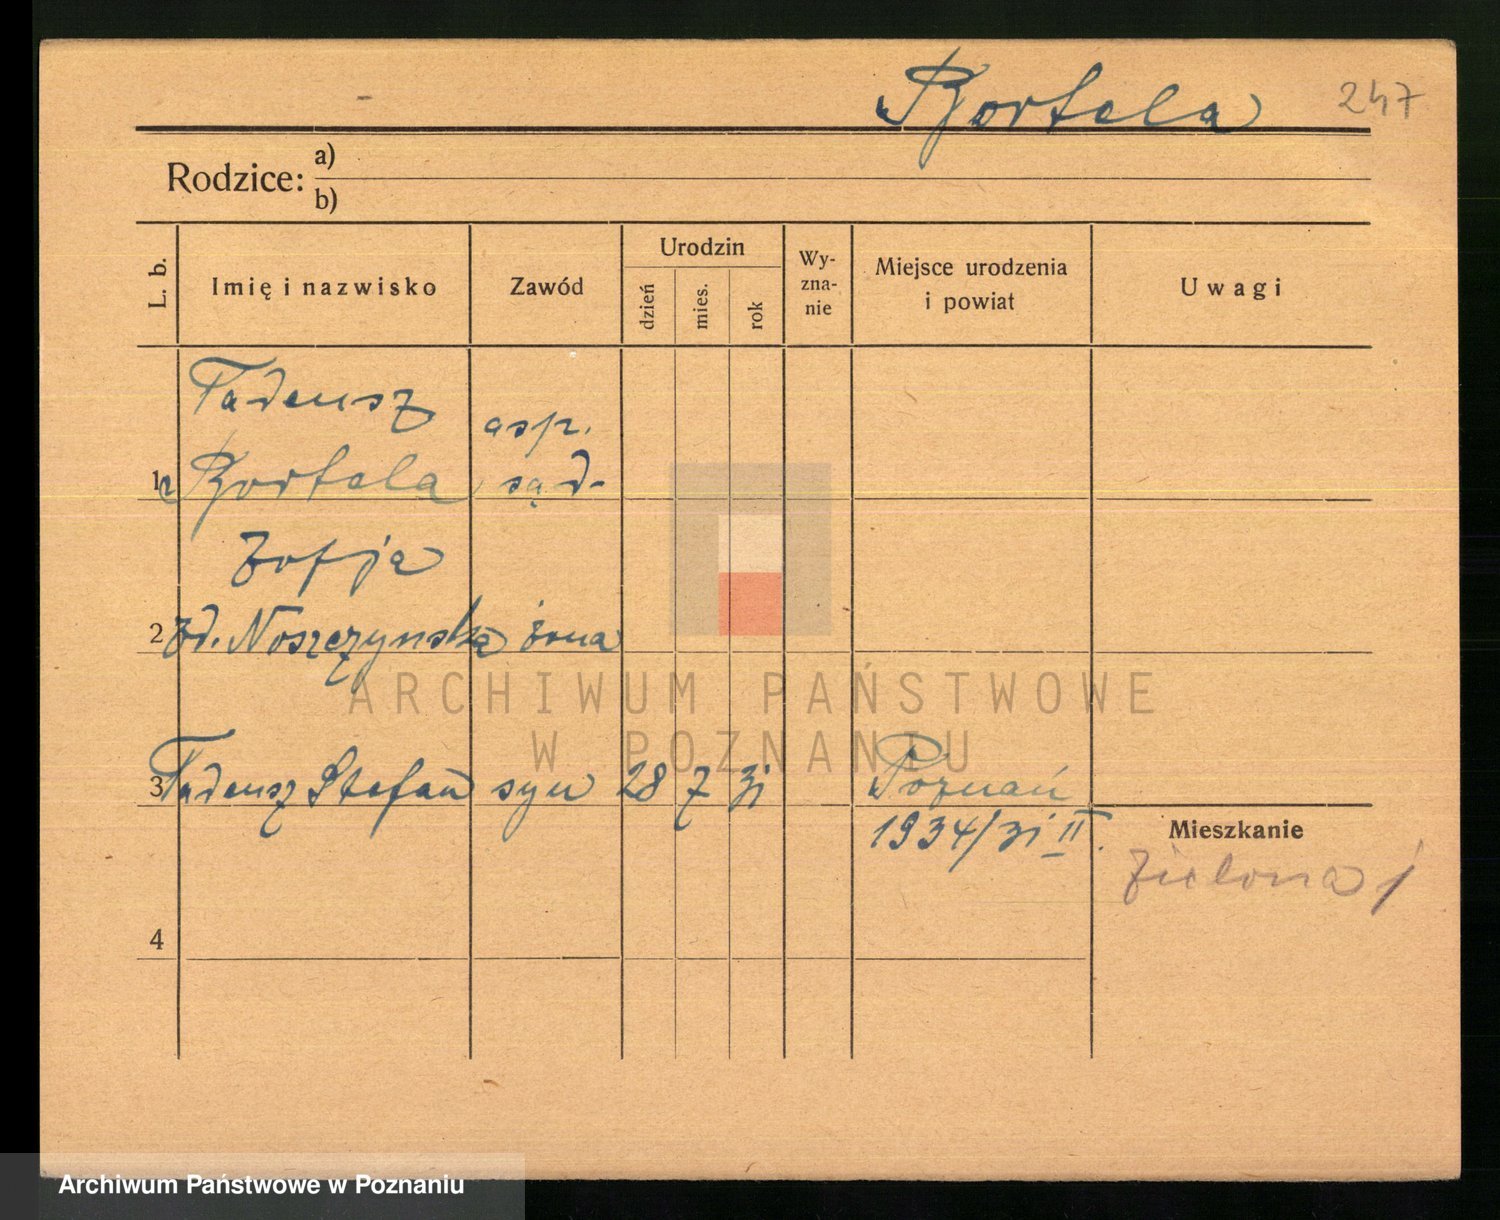 Bortela 247
Rodzice: a)
b)
L. b. Imię i nazwisko Zawód Urodzin dzień mies. rok Wy-zna-nie Miejsce urodzenia i powiat Uwagi
Tadeusz asp.
1 Bortela sąd.
Zofja
2 zd. Noszczyńska żona
3 Tadeusz Stefan syn 28 7 31 Poznań
1934/31 II.
Mieszkanie
Zielona 1
4
ARCHIWUM PAŃSTWOWE
W POZNANIU
Archiwum Państwowe w Poznaniu